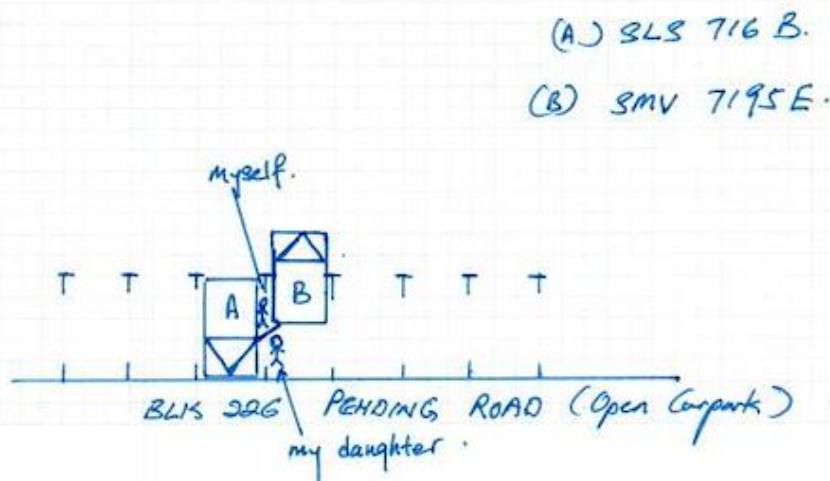 (A) SLS 716 B.
(B) SMV 7195E.
myself.
A
B
BLK 226 PENDING ROAD (Open Carpark)
my daughter.